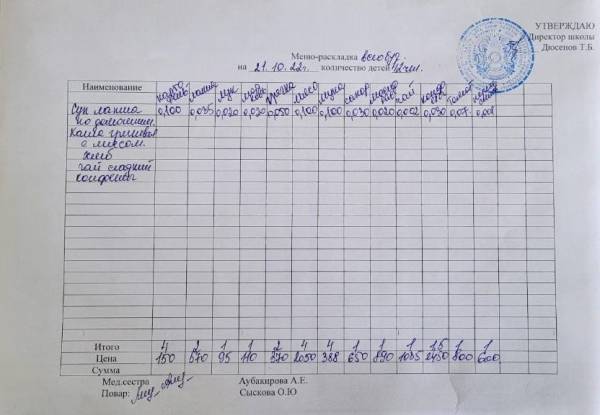 УТВЕРЖДАЮ
Директор школы
Дюсенов Т.Б.
Меню-раскладка
на 21.10.22г. количество детей 42чел.
Наименование картофель лапша лук морковь гречка мясо мука сахар чай томат
Суп лапша 0,100 0,035 0,020 0,030 0,050 0,100 0,100 0,030 0,020 0,002 0,050 0,07 0,008
по домашнему
Каша гречневая
с мясом.
хлеб
чай сладкий
конфеты
Итого 4 2 1 1 2 4 4 1 1 1 1,5 1 1
Цена 150 570 95 110 570 2050 388 650 890 1085 2450 800 600
Сумма
Мед.сестра Аубакирова А.Е.
Повар: Сыскова О.Ю